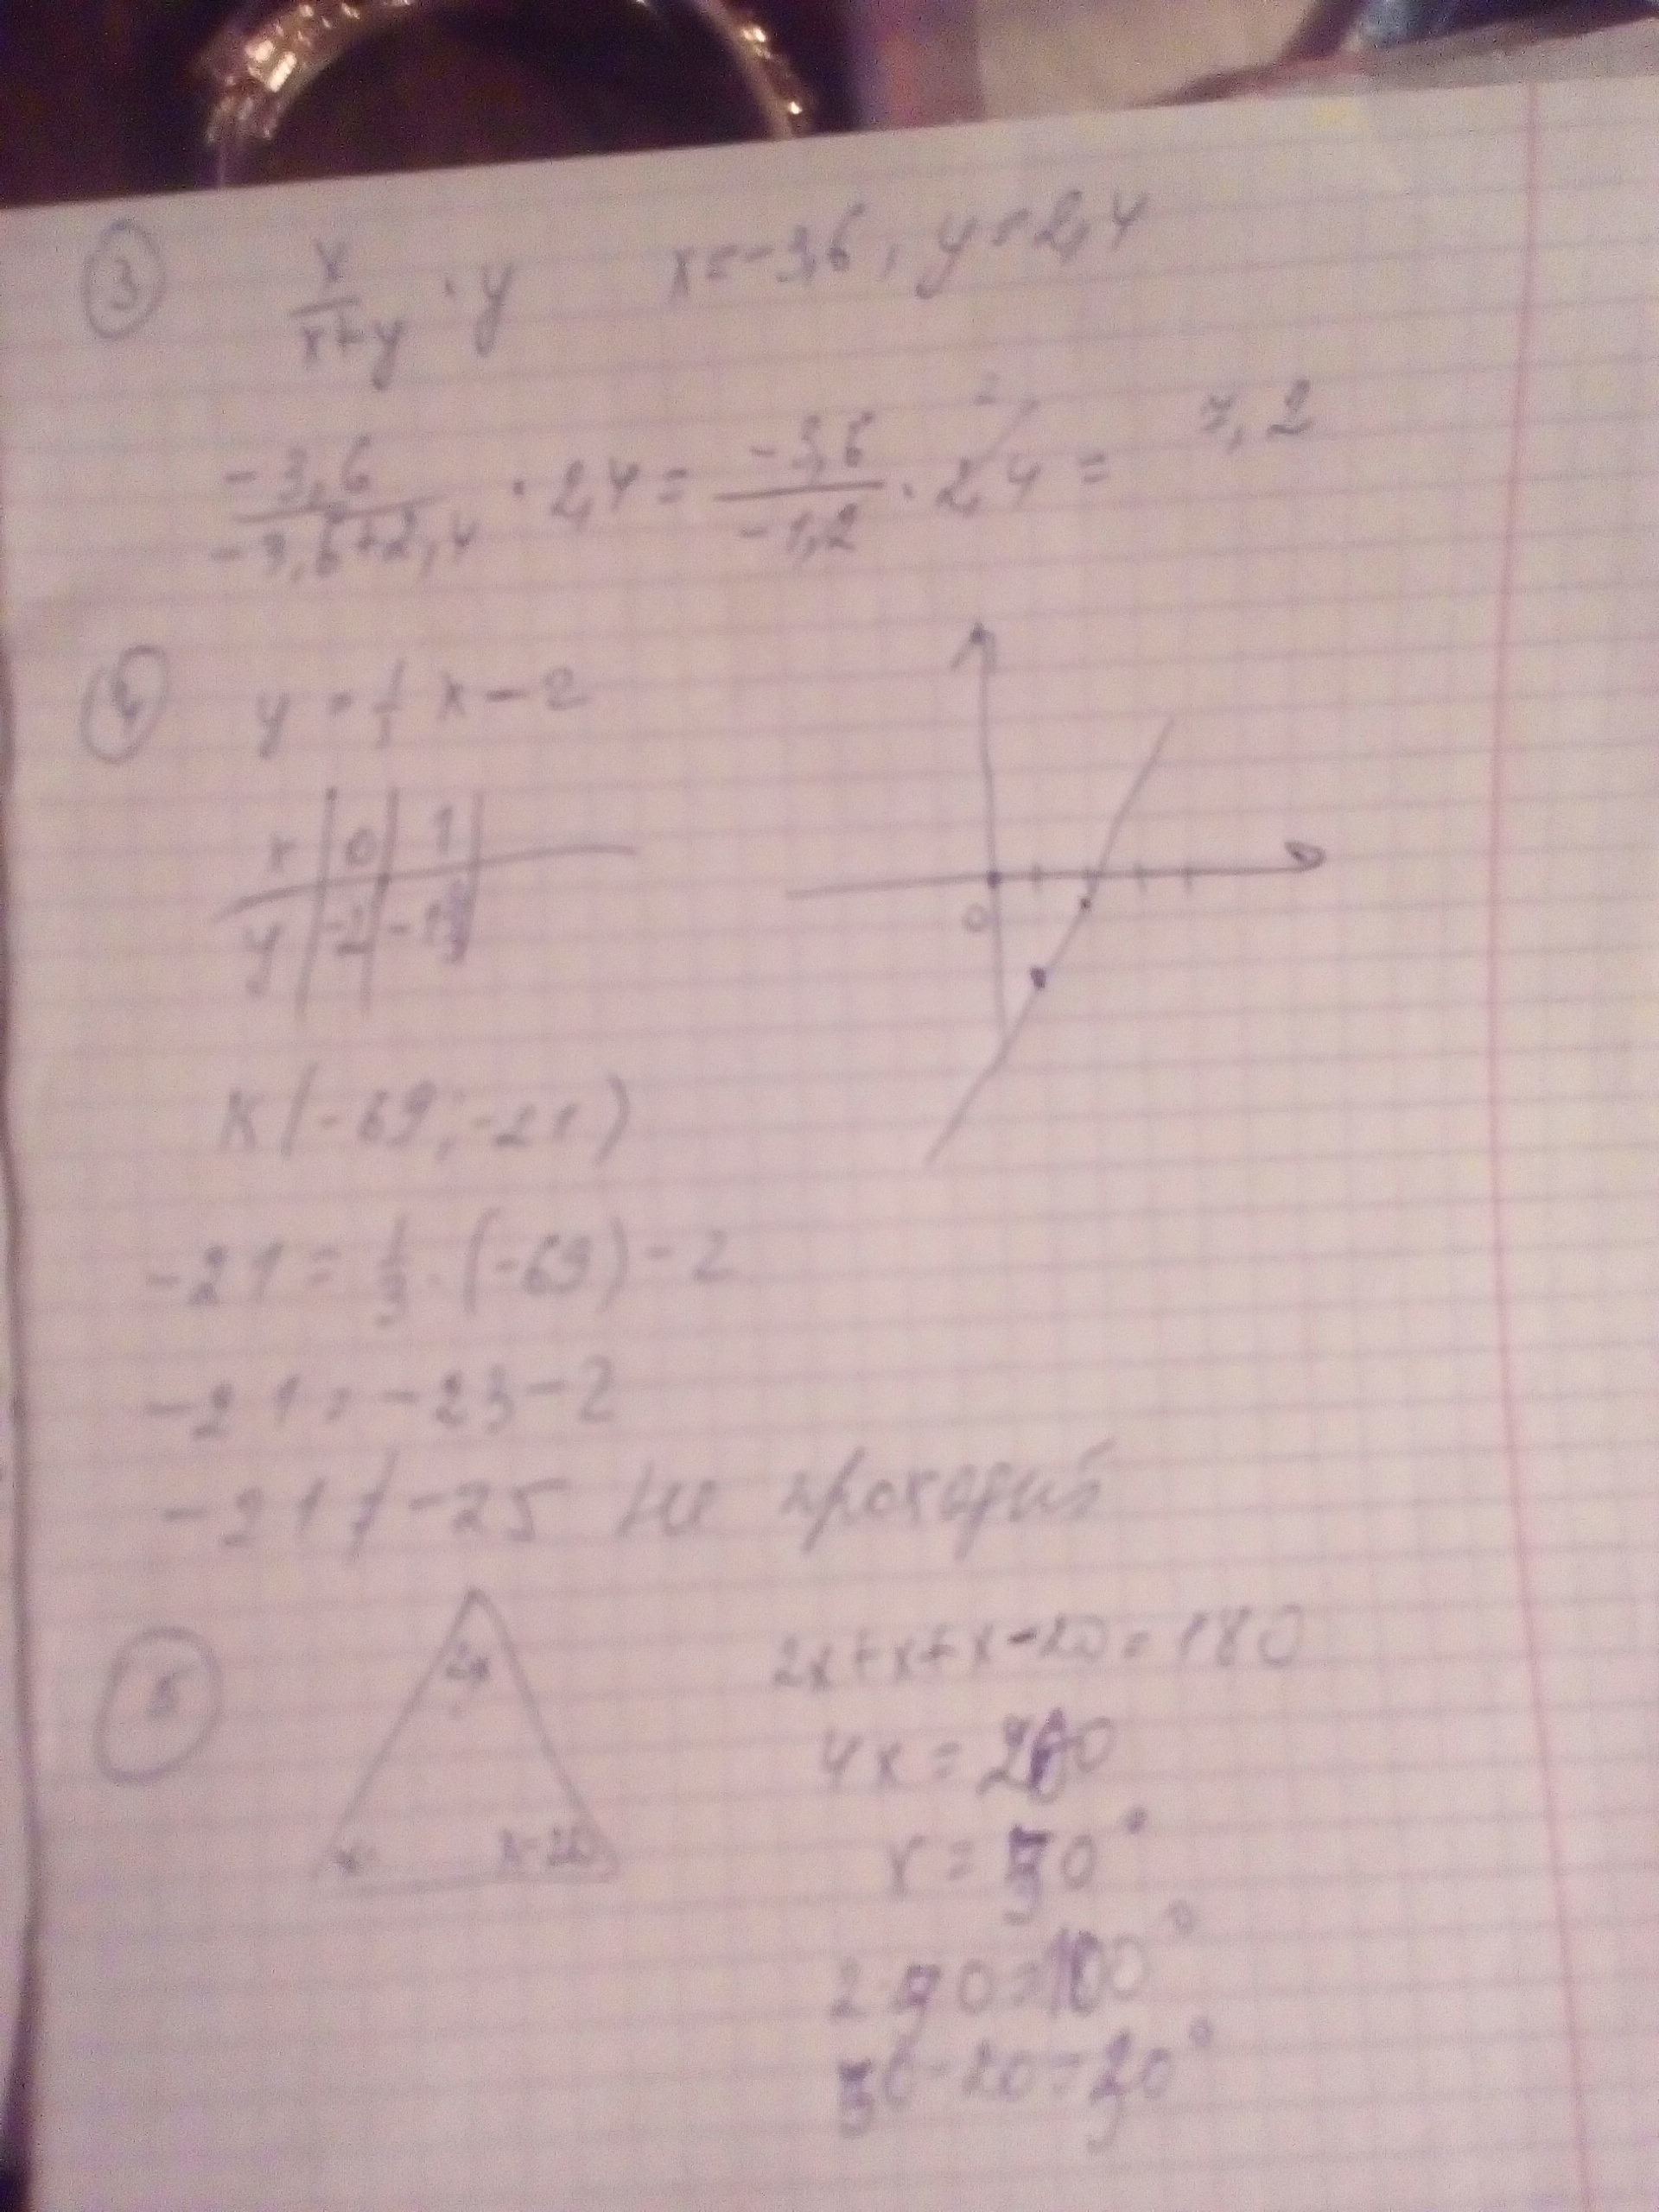 3 x/(x+y) · y x=-3,6, y=2,4
-3,6/(-3,6+2,4) · 2,4 = -3,6/-1,2 · 2,4 = 7,2
2
4 y = 1/3 x - 2
x 0 1
y -2
0
K(-69; -21)
-21 = 1/3 · (-69) - 2
-21 = -23-2
-21 ≠ -25 не проходит
5 2x 2x+x+x-20=180
4x = 200
x x-20 x = 50°
2·50=100°
50-20=30°